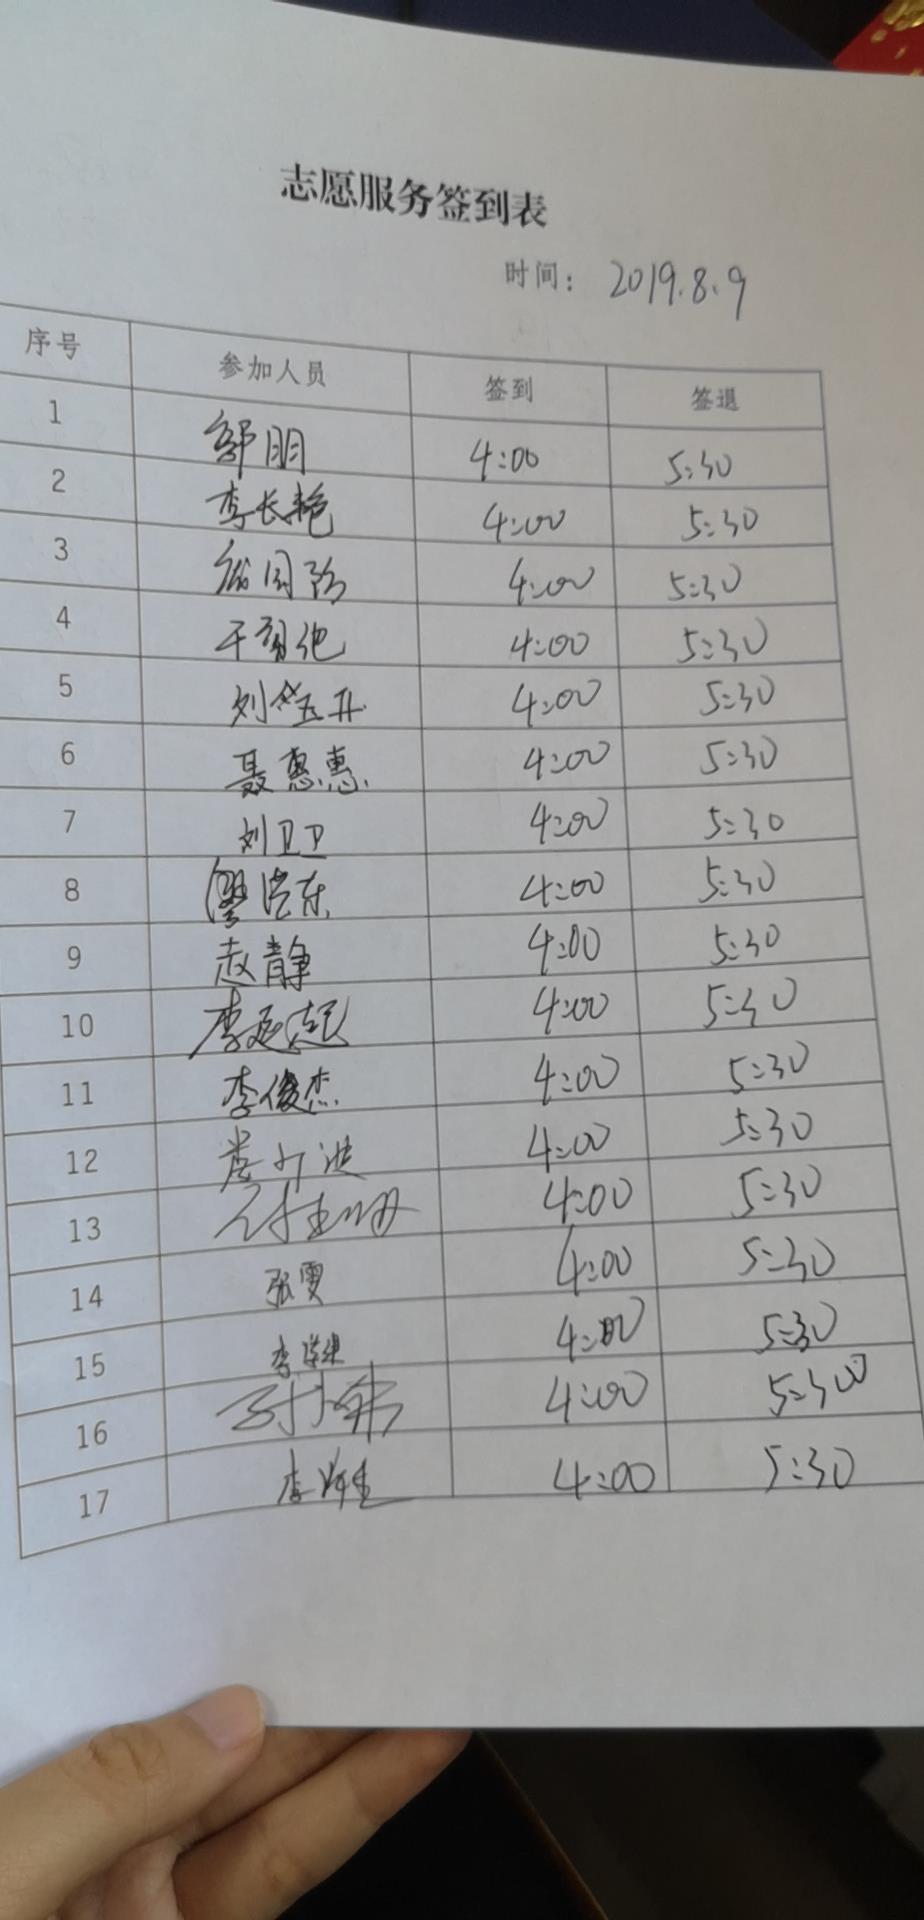 志愿服务签到表
时间： 2019.8.9
序号 参加人员 签到 签退
1 邹朋 4:00 5:30
2 李长艳 4:00 5:30
3 4:00 5:30
4 4:00 5:30
5 刘 4:00 5:30
6 聂惠惠 4:00 5:30
7 刘卫卫 4:00 5:30
8 廖 东 4:00 5:30
9 赵静 4:00 5:30
10 李延超 4:00 5:30
11 李俊杰 4:00 5:30
12 4:00 5:30
13 4:00 5:30
14 张雯 4:00 5:30
15 李 4:00 5:30
16 4:00 5:300
17 李 4:00 5:30